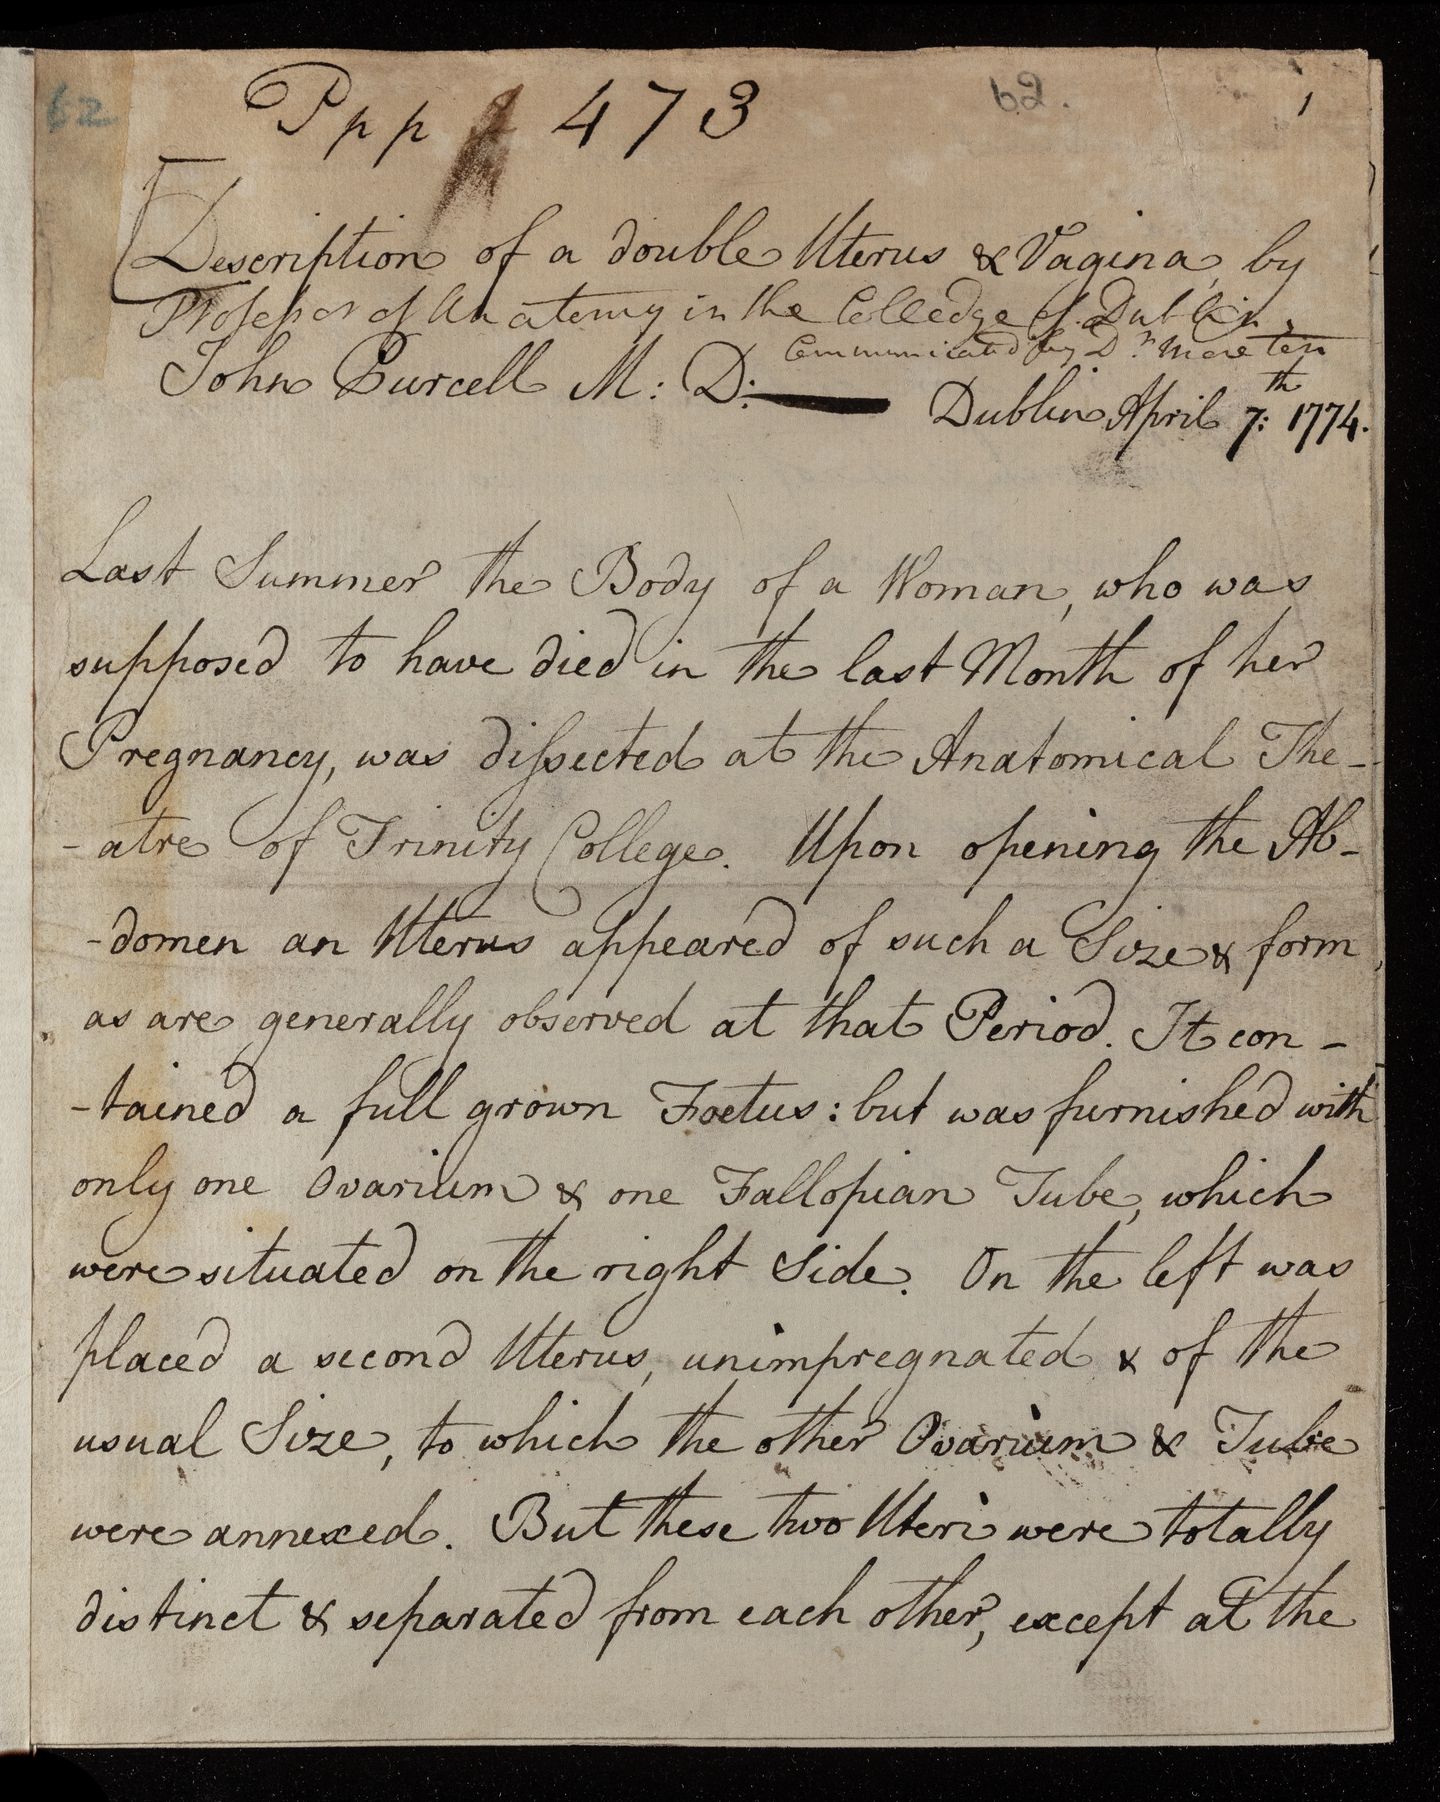 62
Ppp 473
62.
1
Description of a double Uterus & Vagina, by
Professor of Anatomy in the Colledge of Dublin,
Communicated by Dr. Morton
John Purcell M: D:
Dublin April 7:th 1774.
Last Summer the Body of a Woman, who was
supposed to have died in the last Month of her
Pregnancy, was dissected at the Anatomical The-
- atre of Trinity College. Upon opening the Ab-
- domen an Uterus appeared of such a Size & form,
as are generally observed at that Period. It con -
- tained a full grown Foetus : but was furnished with
only one Ovarium & one Fallopian Tube, which
were situated on the right Side. On the left was
placed a second Uterus, unimpregnated & of the
usual Size, to which the other Ovarium & Tube
were annexed. But these two Uteri were totally
distinct & separated from each other, except at the